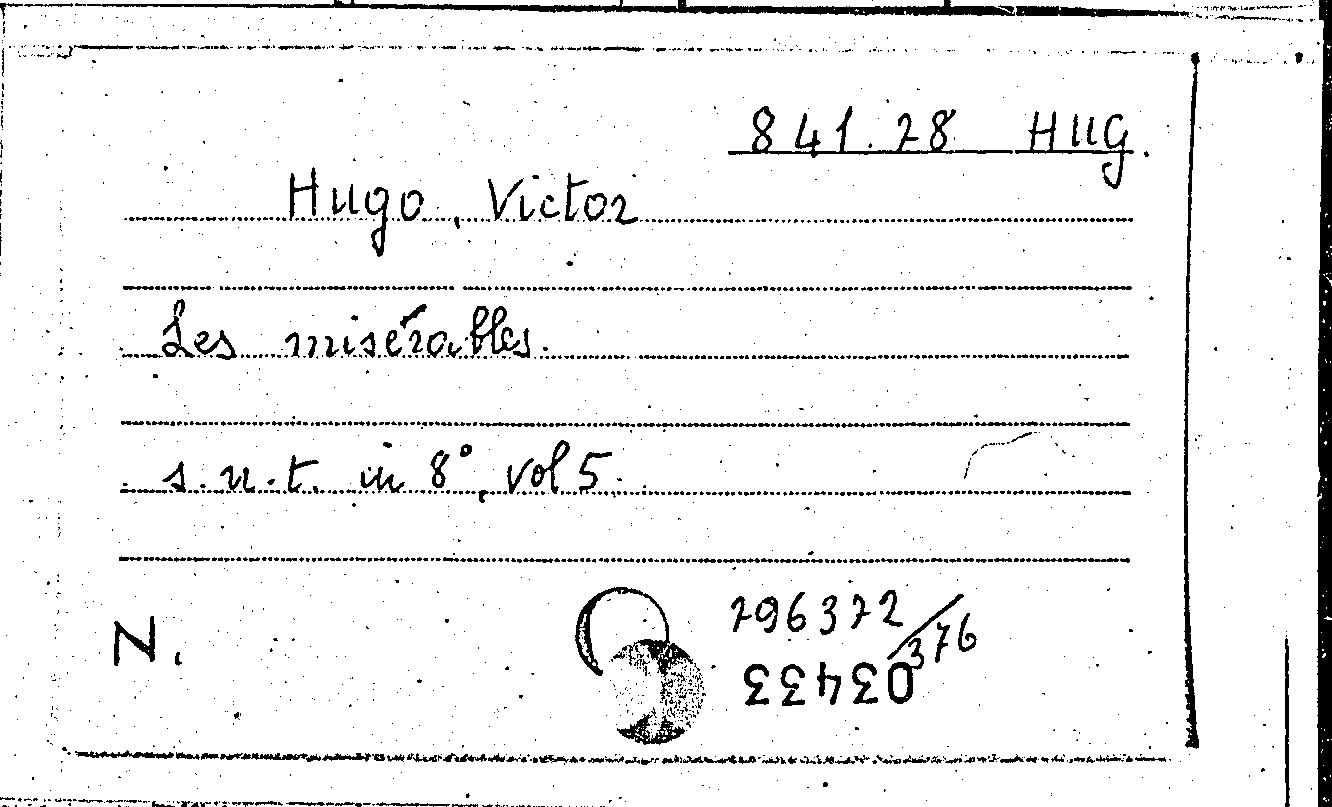 841.78 HUg.
Hugo, Victor
Les misérables.
s.n.t. in 8°, vol 5.
N. 796372/376
03433